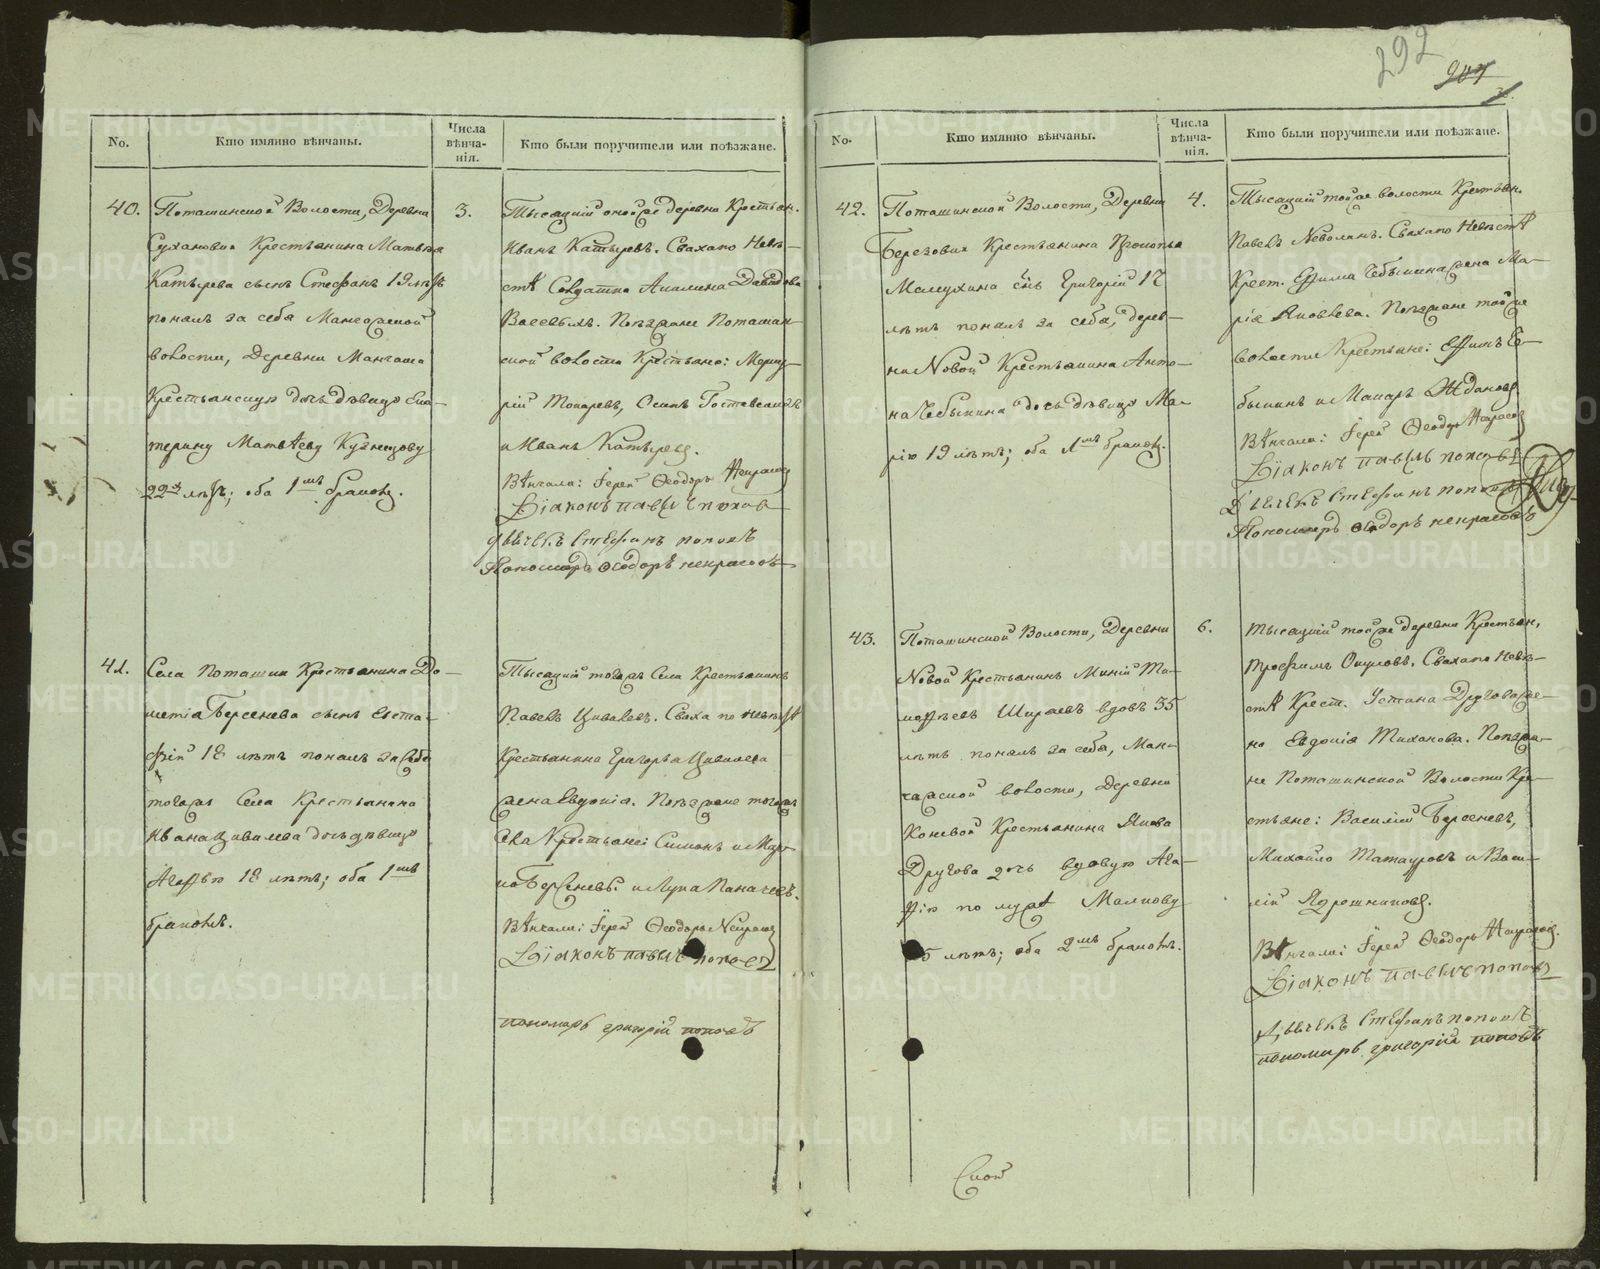 292
207
No.
Кто имянно вѣнчаны.
Числа вѣнча-нія.
Кто были поручители или поѣзжане.
40.
Поташинской Волости, Деревни
Сухановки Крестьянина Матвѣя
Катырева сынъ Стефанъ 19 лѣтъ
понялъ за себя Манчажской
волости, Деревни Манчажа
Крестьянскую дочь дѣвицу Ека-
терину Матвѣеву Кузнецову
22х лѣтъ; оба 1мъ бракомъ.
3.
Тысяцкій оной же деревни Крестьян.
Иванъ Катыревъ. Свахато Невѣ-
стѣ Солдатка Акилина Давидова
Поѣзжане Поташин-
ской волости Крестьяно:
Токаревъ, Осипъ
и Иванъ Катыревъ.
Вѣнчали: Іерей Ѳеодоръ Некрасовъ
Діаконъ павелъ поповъ
дьячекъ Стефанъ поповъ
Пономарь Ѳеодоръ некрасовъ
41.
Села Поташки Крестьянина До-
метіа Берсенева сынъ Евста-
фій 18 лѣтъ понялъ за себя
тогожъ Села Крестьянина
Ивана Цивилева дочь дѣвицу
Агафью 18 лѣтъ; оба 1мъ
бракомъ.
Тысяцкій тогожъ Села Крестьянинъ
Павелъ Цивилевъ. Сваха по невѣстѣ
Крестьянина Григорья Цивилева
жена Евдокія. Поѣзжане тогожъ
села Крестьяне: Симонъ и Мар-
ко Берсеневы и Лука Паначевъ.
Вѣнчали: Іерей Ѳеодоръ Некрасовъ
Діаконъ павелъ поповъ
пономарь григорій поповъ
No.
Кто имянно вѣнчаны.
Числа вѣнча-нія.
Кто были поручители или поѣзжане.
42.
Поташинской Волости, Деревни
Березовки Крестьянина Прокопья
Мамухина сынъ Григорій 17
лѣтъ понялъ за себя, дерев-
ни Новой Крестьянина Анто-
на Чебыкина дочь дѣвицу Ма-
рію 19 лѣтъ; оба 1мъ бракомъ.
4.
Тысяцкій той же волости Крестьян.
Павелъ Неволинъ. Свахато Невѣстѣ
Крест. Ефима Чебыкина жена Ма-
рія Яковлева. Поѣзжане той же
волости Крестьяне: Ефимъ Че-
быкинъ и Макаръ Ждановъ.
Вѣнчали: Іерей Ѳеодоръ Некрасовъ
Діаконъ павелъ поповъ
Дьячекъ Стефанъ поповъ
Пономарь Ѳеодоръ некрасовъ
43.
Поташинской Волости, Деревни
Новой Крестьянинъ Миній Ти-
мофѣевъ Ширяевъ вдовъ 35
лѣтъ понялъ за себя, Ман-
чажской волости, Деревни
Коневой Крестьянина Якова
Другова дочь вдовую Ага-
фію по мужѣ Малкову
35 лѣтъ; оба 2мъ бракомъ.
6.
Тысяцкій той же деревни Крестьян,
Трофимъ Окуловъ. Свахато Невѣ-
стѣ Крест. Устина Другова же-
на Евдокія Тиханова. Поѣзжа-
не Поташинской Волости Кре-
стьяне: Василій Берсеневъ,
Михайло Татауровъ и Васи-
лій Ядрошниковъ.
Вѣнчали: Іерей Ѳеодоръ Некрасовъ.
Діаконъ павелъ поповъ
Дьячекъ Стефанъ поповъ
пономарь григорій поповъ
METRIKI.GASO-URAL.RU